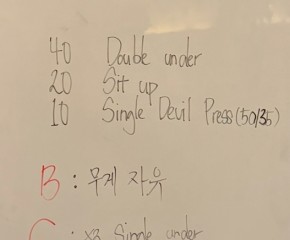 40 Double under
20 Sit up
10 Single Devil Press (50/35)
B : 무게 자유
C : x3 Single under